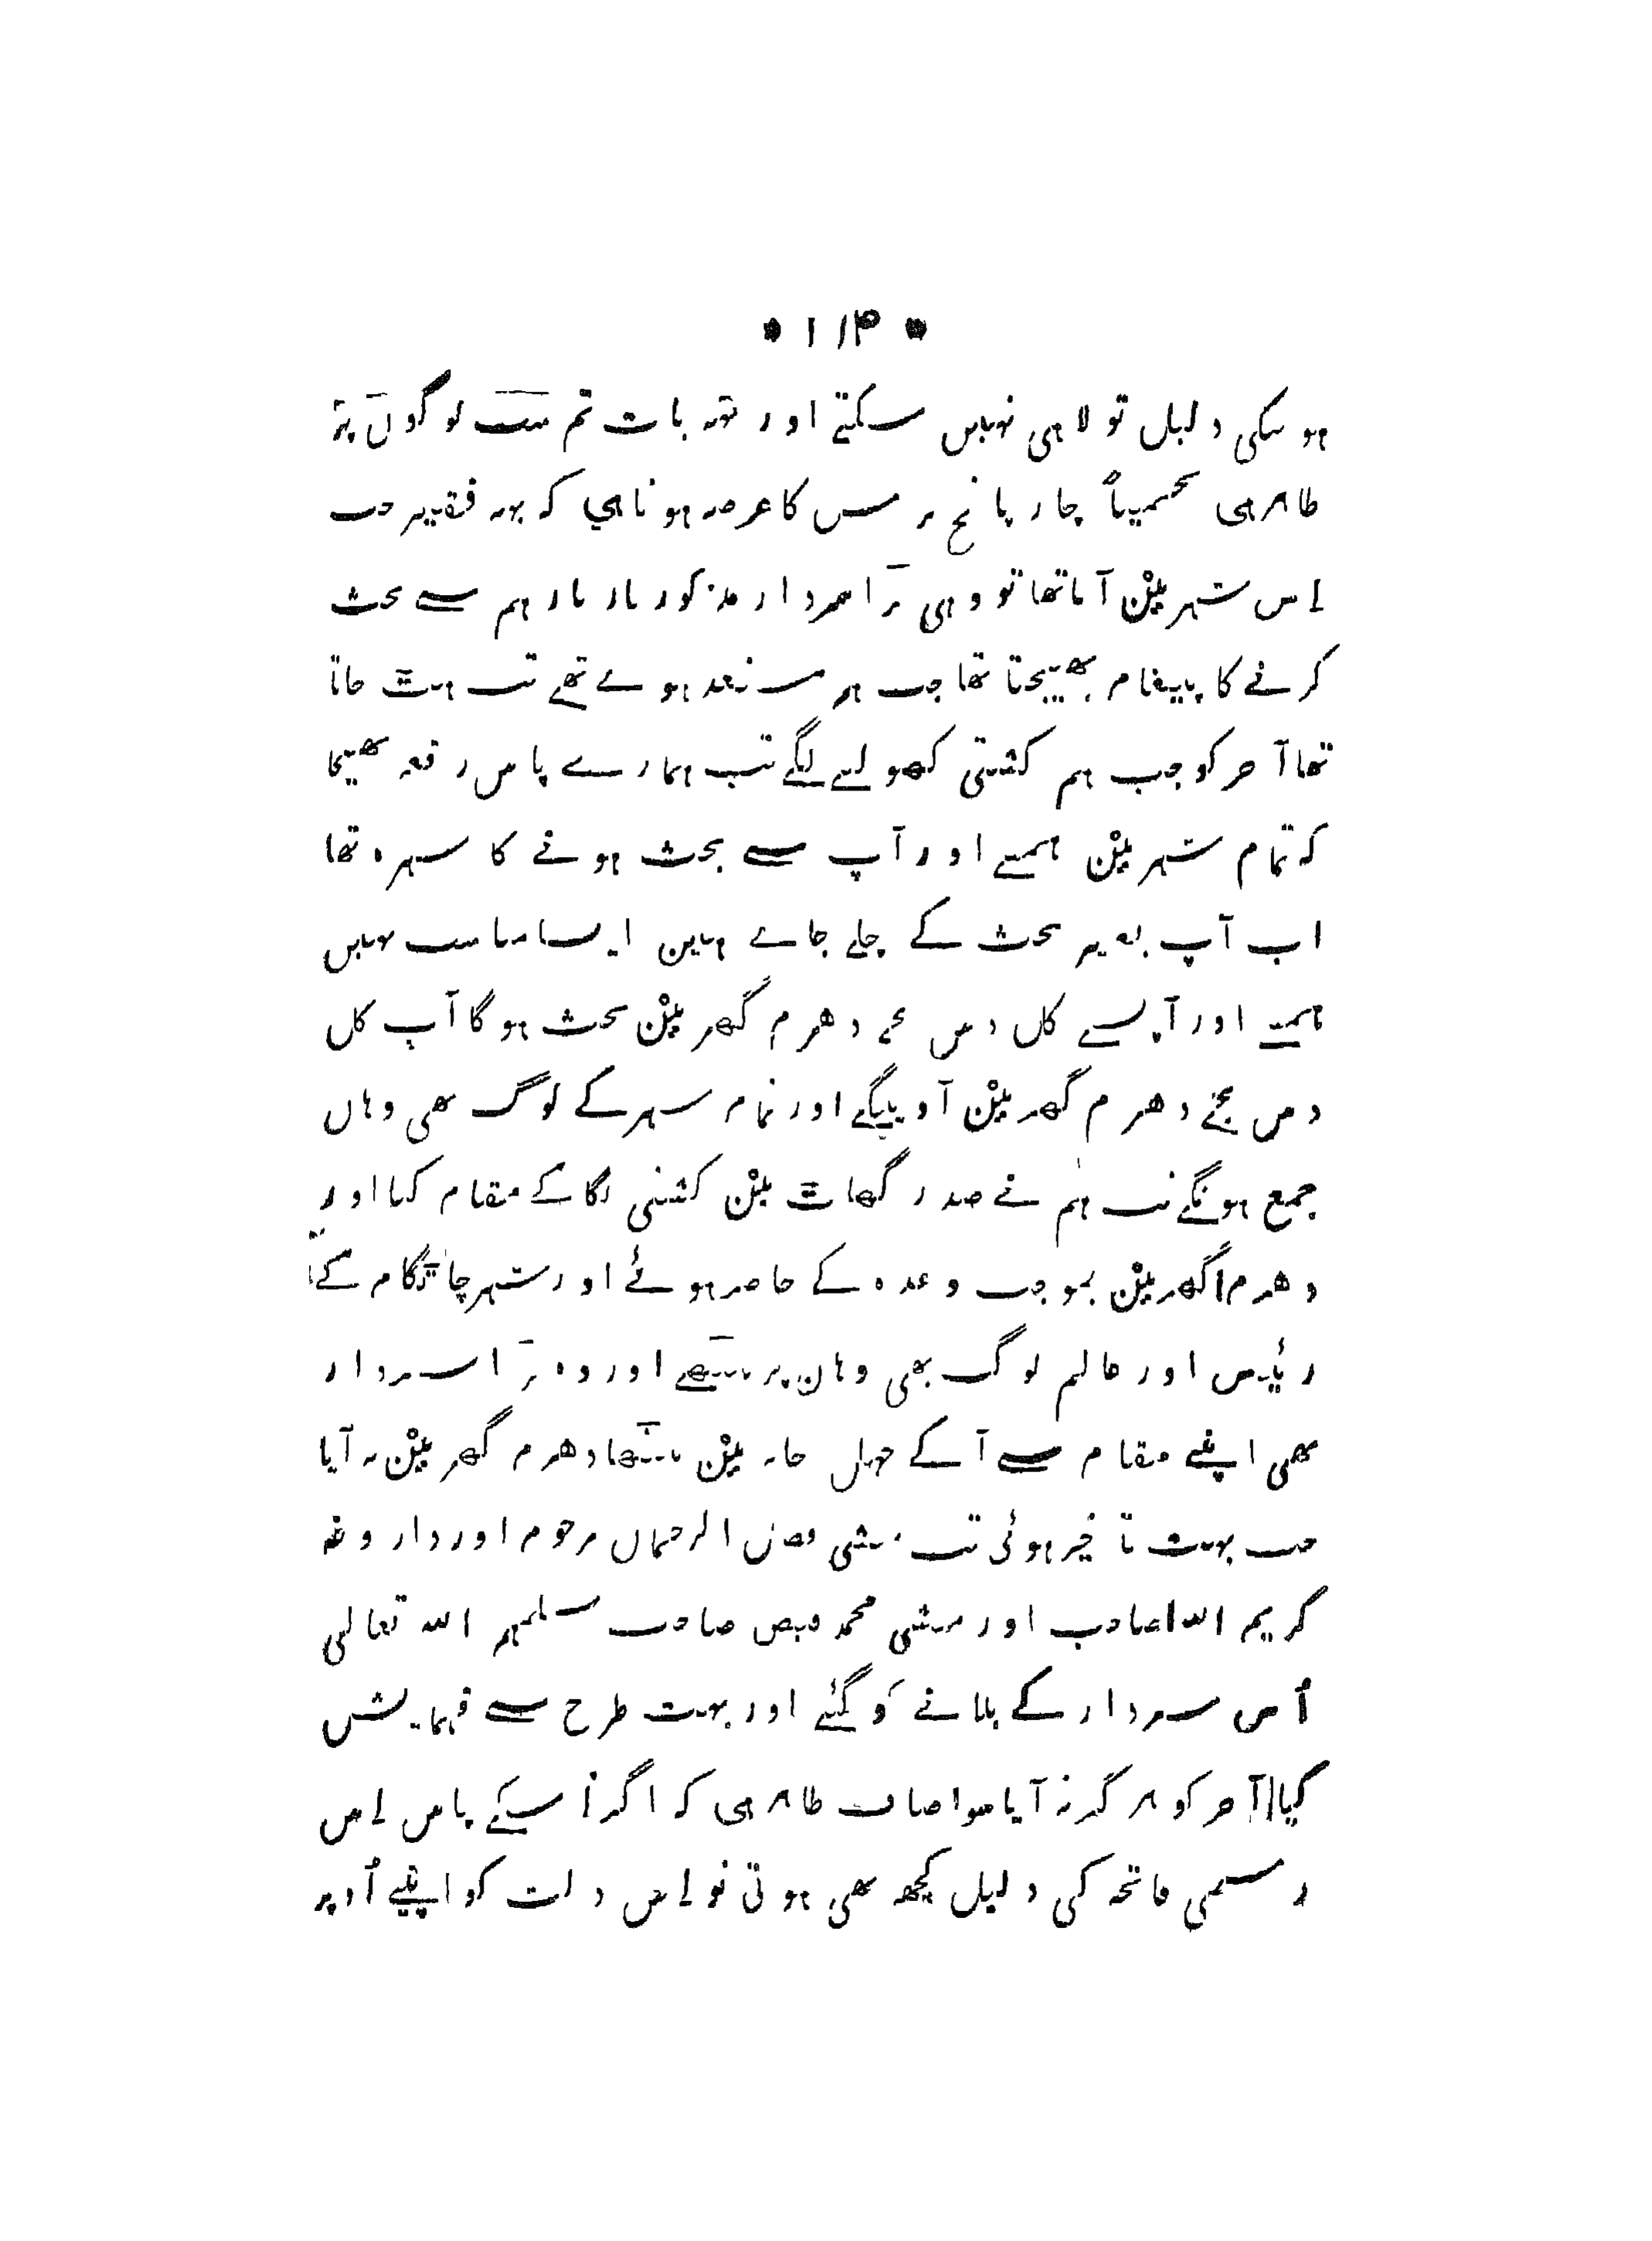 * ۱۱۴ *
ہوسکی دلیل تو لا ہی نہیں سکتے اور یہ بات تم سب لوگوں پر
ظاہر ہی تخمیناً چار پانچ برس کا عرصہ ہوتا ہی کہ یہہ فقیر جب
اِس شہر میں آیا تھا تو وہی بڑا سردار مذکور بار بار ہم سے بحث
کرنے کا پیغام بھیجتا تھا جب ہم مستعد ہوے تھے تب ہٹ جاتا
تھا آخر کو جب ہم کشتی کھولنے لگے تب ہمارے پاس رقعہ بھیجا
کہ تمام شہر میں ہمسے اور آپ سے بحث ہونے کا شہرہ تھا
اب آپ بغیر بحث کے چلے جاے ہیں ایسا مناسب نہیں
ہمسے اور آپسے کل دس بجے دھرم گھر میں بحث ہوگا آپ کل
دس بجے دھرم گھر میں آویںگے اور تمام شہر کے لوگ بھی وہاں
جمع ہونگے تب ہم نے صدر گھاٹ میں کشتی لگا کے مقام کیا اور
دھرم گھر میں بموجب وعدہ کے حاضر ہوئے اور شہر چاٹگام کے
رئیس اور عالم لوگ بھی وہان پر بیٹھے اور وہ بڑا سردار
بھی اپنے مقام سے آ کے جہل خانہ میں بیٹھا دھرم گھر میں نہ آیا
جب بہت تاخیر ہوئی تب منشی فضل الرحمان مرحوم اور داروغہ
کریم اللہ صاحب اور منشی محمد فیض صاحب سلمہم اللہ تعالی
اُس سردار کے بلانے کو گئے اور بہت طرح سے فہمایش
کیا آخر کو ہرگز نہ آیا سو اصاف ظاہر ہی کہ اگر اُسکے پاس اِس
رسمی فاتحہ کی دلیل کچھہ بھی ہوتی تو اِس ذلت کو اپنے اُوپر